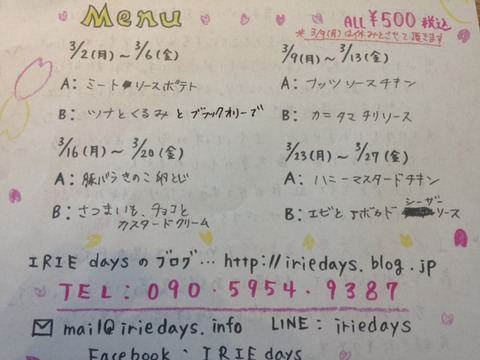 Menu
ALL ¥500 税込
※3/9(月)は休みとさせて頂きます
3/2(月)～3/6(金)
A:ミートソースポテト
B:ツナとくるみとブラックオリーブ
3/9(月)～3/13(金)
A:ナッツソースチキン
B:カニタマチリソース
3/16(月)～3/20(金)
A:豚バラきのこ卵とじ
B:さつまいも、チョコと
カスタードクリーム
3/23(月)～3/27(金)
A:ハニーマスタードチキン
B:エビとアボカドシーザーソース
IRIE daysのブログ…http://iriedays.blog.jp
TEL:090.5954.9387
mail@iriedays.info LINE:iriedays
Facebook:IRIE days